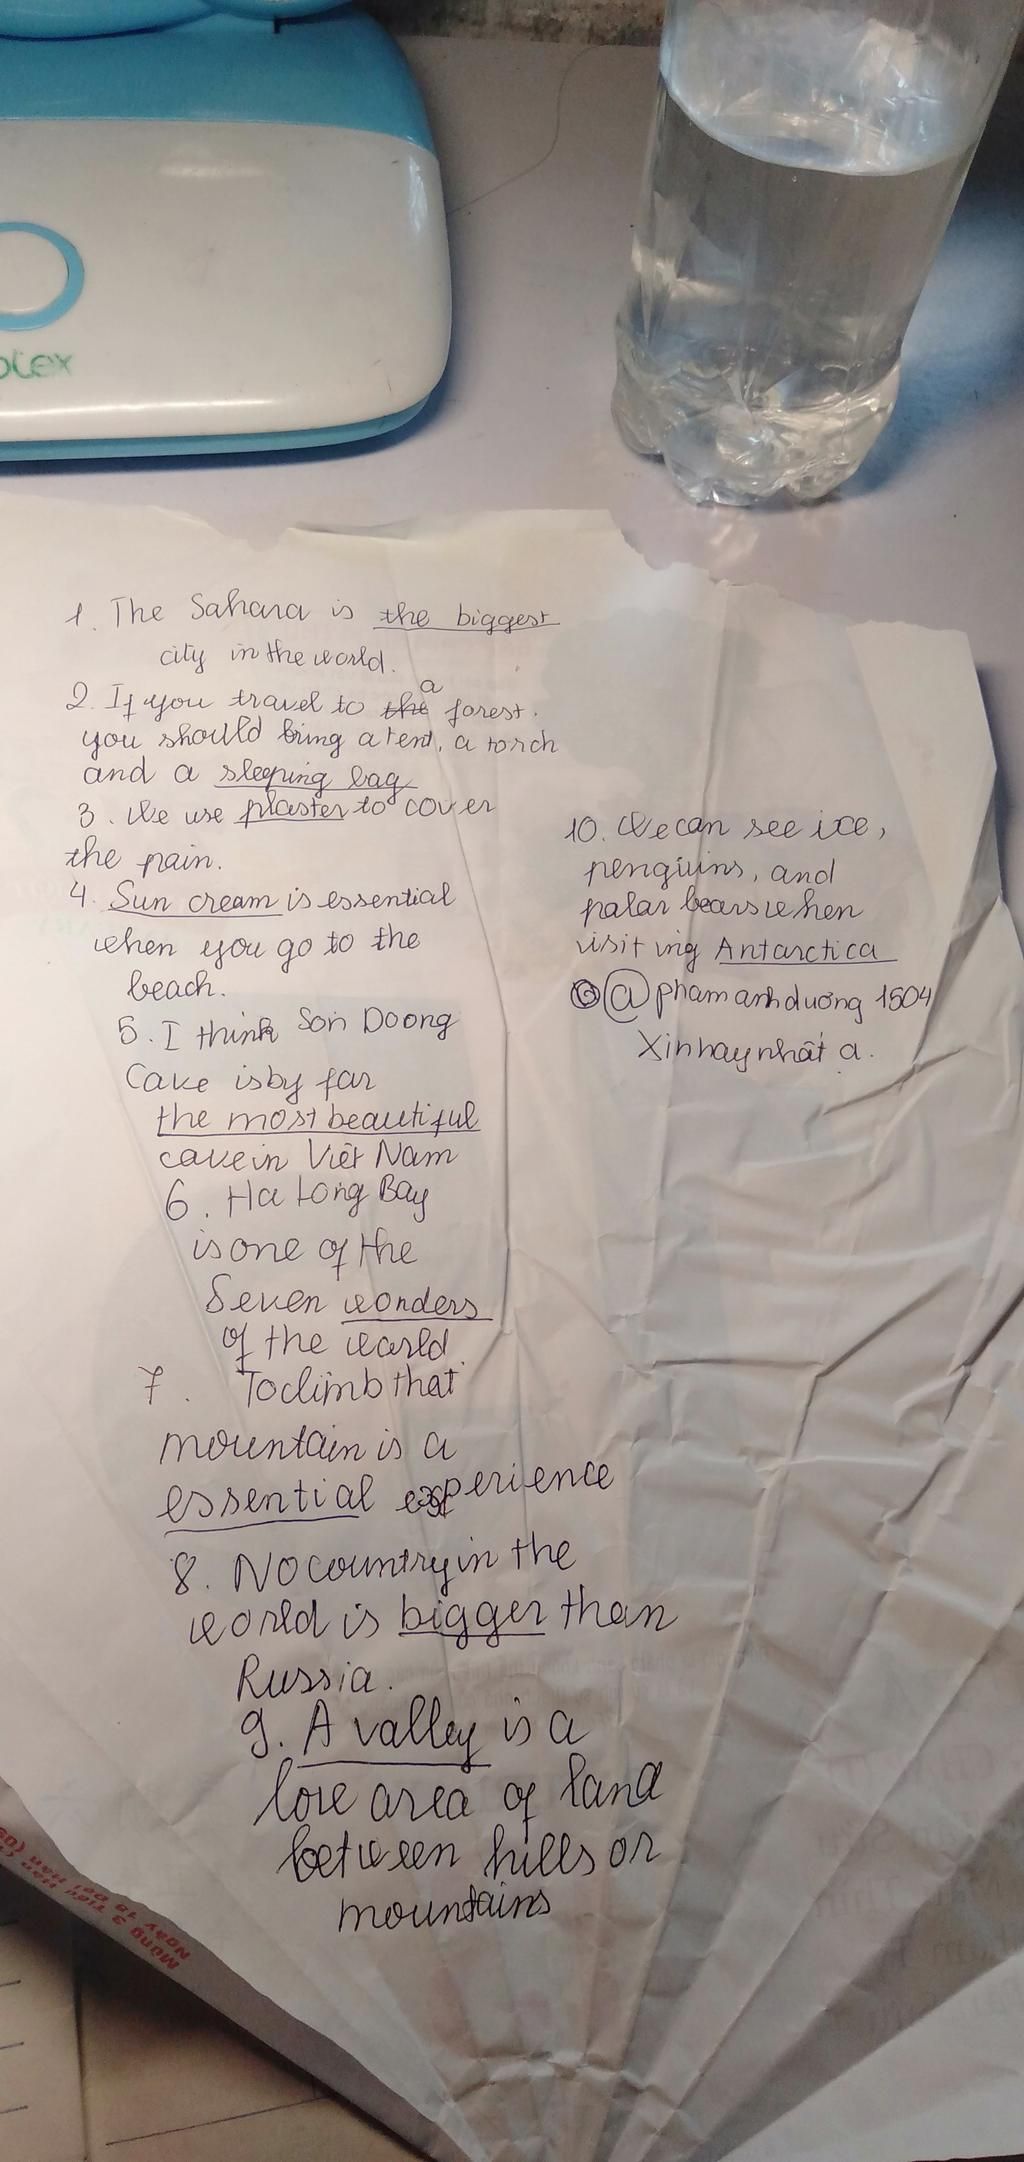 1. The Sahara is the biggest
city in the world.
2. If you travel to the a forest.
you should bring a tent, a torch
and a sleeping bag
3. We use plaster to cover
the pain.
4. Sun cream is essential
when you go to the
beach.
5. I think Son Doong
Cave is by far
the most beautiful
cave in Việt Nam
6. Ha Long Bay
is one of the
Seven wonders
of the world.
7. To climb that
mountain is a
essential experience
8. No country in the
world is bigger than
Russia.
9. A valley is a
low area of land
between hills or
mountains
10. We can see ice,
penguins, and
palar bears when
visiting Antarctica
@phamanhdương 1504
Xin hay nhất ạ.
Mùng 3 Tiểu Hàn